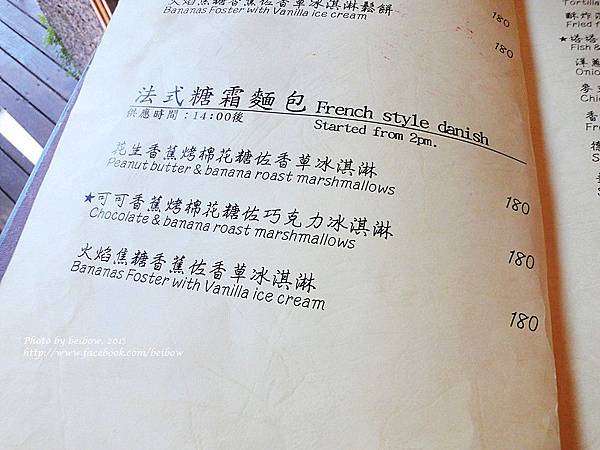 火焰焦糖香蕉佐香草冰淇淋鬆餅 180
Bananas Foster with Vanilla ice cream
180
法式糖霜麵包 French style danish
供應時間：14:00後 Started from 2pm.
花生香蕉烤棉花糖佐香草冰淇淋
Peanut butter & banana roast marshmallows 180
★可可香蕉烤棉花糖佐巧克力冰淇淋
Chocolate & banana roast marshmallows 180
火焰焦糖香蕉佐香草冰淇淋
Bananas Foster with Vanilla ice cream 180
Tortilla
酥炸
Fried f
★塔塔
Fish &
洋蔥
Onio
麥
Chic
香
F
德
S
Photo by beibow, 2015
http://www.facebook.com/beibow